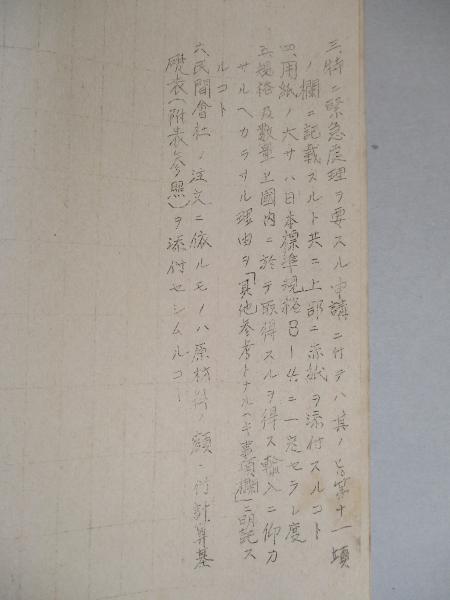 三、特ニ緊急處理ヲ要スル申請ニ付テハ其ノ旨第十一項
ノ欄ニ記載スルト共ニ上部ニ赤紙ヲ添付スルコト
四、用紙ノ大サハ日本標準規格B一共ニ一定セラレ度
五、規格及数量上國内ニ於テ取得スルヲ得ス輸入ニ仰カ
サルヘカラサル理由ヲ「其他参考トナルヘキ事項欄」ニ明記ス
ルコト
六、民間會社ノ注文ニ依ルモノハ原材料ノ額ニ付計算基
礎表(附表参照)ヲ添付セシムルコト